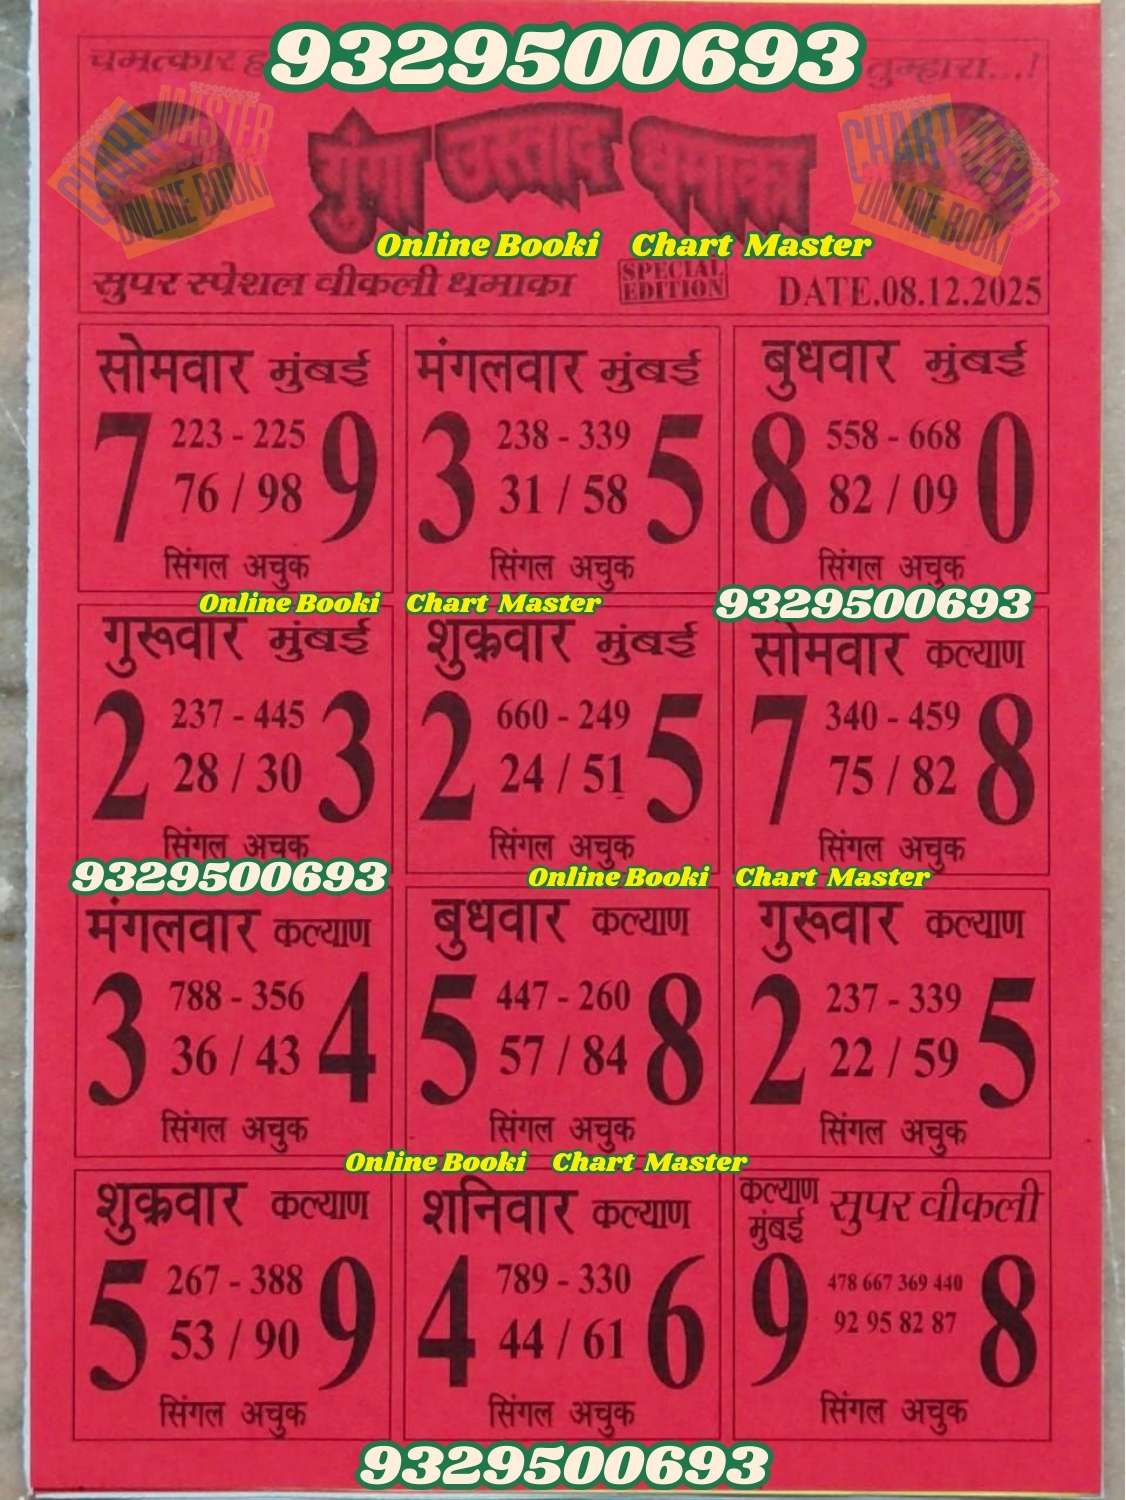 9329500693
चमत्कार तुम्हारा...!
गुंगा उस्ताद धमाका
CHART MASTER ONLINE BOOKI
CHART MASTER ONLINE BOOKI
Online Booki Chart Master
सुपर स्पेशल वीकली धमाका SPECIAL EDITION DATE.08.12.2025
सोमवार मुंबई
7 223 - 225 9
76 / 98
सिंगल अचुक
मंगलवार मुंबई
3 238 - 339 5
31 / 58
सिंगल अचुक
बुधवार मुंबई
8 558 - 668 0
82 / 09
सिंगल अचुक
Online Booki Chart Master
9329500693
गुरूवार मुंबई
2 237 - 445 3
28 / 30
सिंगल अचुक
शुक्रवार मुंबई
2 660 - 249 5
24 / 51
सिंगल अचुक
सोमवार कल्याण
7 340 - 459 8
75 / 82
सिंगल अचुक
9329500693
Online Booki Chart Master
मंगलवार कल्याण
3 788 - 356 4
36 / 43
सिंगल अचुक
बुधवार कल्याण
5 447 - 260 8
57 / 84
सिंगल अचुक
गुरूवार कल्याण
2 237 - 339 5
22 / 59
सिंगल अचुक
Online Booki Chart Master
शुक्रवार कल्याण
5 267 - 388 9
53 / 90
सिंगल अचुक
शनिवार कल्याण
4 789 - 330 6
44 / 61
सिंगल अचुक
कल्याण मुंबई सुपर वीकली
9 478 667 369 440 8
92 95 82 87
सिंगल अचुक
9329500693